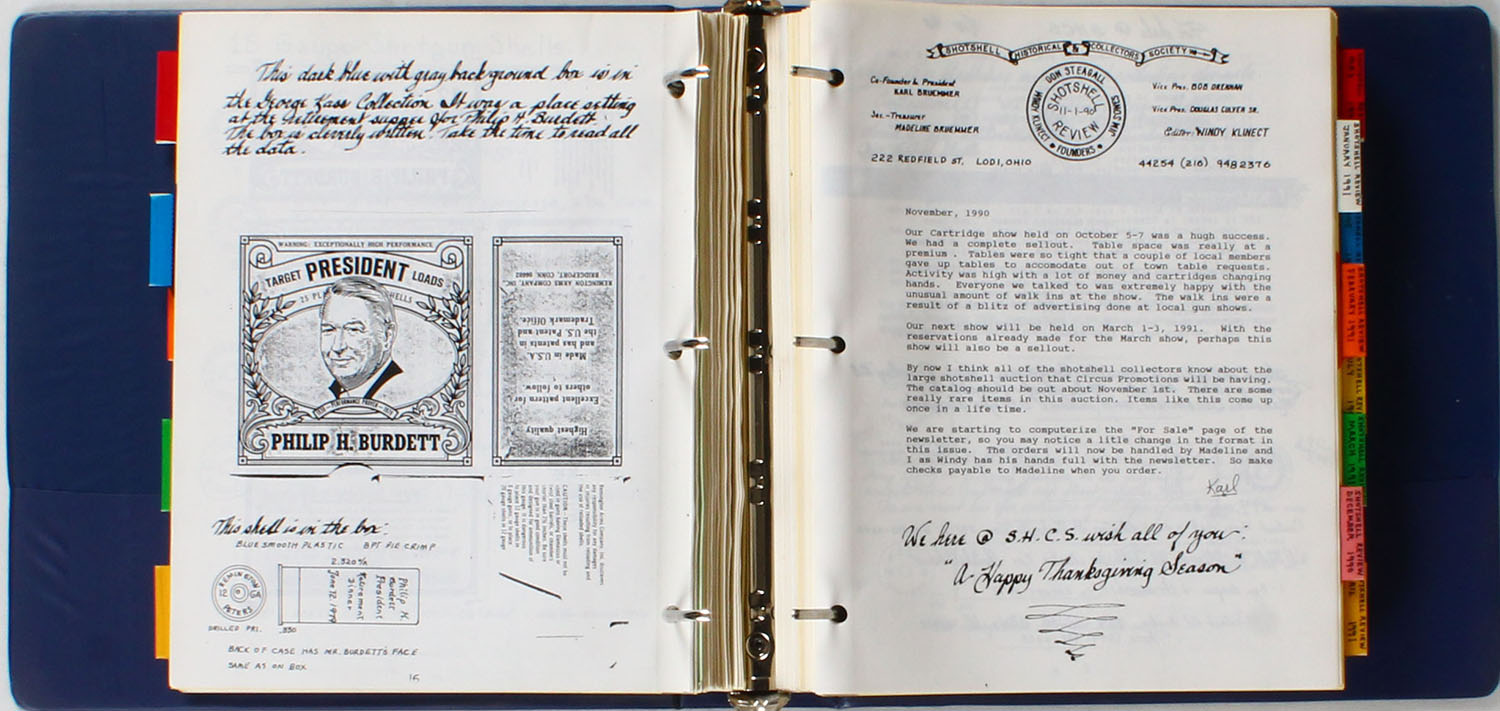 This dark blue with gray background box is in
the George Kass Collection It was a place setting
at the retirement supper for Philip H. Burdett.
The box is cleverly written! Take the time to read all
the data.
WARNING: EXCEPTIONALLY HIGH PERFORMANCE
TARGET PRESIDENT LOADS
25 PL SHELLS
PHILIP H. BURDETT
Highest quality
Excellent pattern for
others to follow.
Made in U.S.A.
and has patents in
the U.S. Patent and
Trademark Office.
REMINGTON ARMS COMPANY, INC.
BRIDGEPORT, CONN. 06602
Remington Arms Company, Inc. disclaims
any responsibility for any damages
or injuries resulting from reloading and
the use of reloaded shells.
This shell is in the box:
BLUE SMOOTH PLASTIC 8PT PIE CRIMP
2.320"
REMINGTON
12 GA
PETERS
Philip H.
Burdett
President
Retirement
Dinner
June 12, 1979
DRILLED PRI. .330
BACK OF CASE HAS MR. BURDETT'S FACE
SAME AS ON BOX.
SHOTSHELL HISTORICAL & COLLECTORS SOCIETY
Co-Founder & President
KARL BRUEMMER
Sec.-Treasurer
MADELINE BRUEMMER
222 REDFIELD ST. LODI, OHIO
DON STEAGALL
JIM SIMMONS
WINDY KLINECT
FOUNDERS
SHOTSHELL
11-1-90
REVIEW
Vice Pres. BOB DRENNAN
Vice Pres. DOUGLAS CULVER SR.
Editor: WINDY KLINECT
44254 (216) 9482376
November, 1990
Our Cartridge show held on October 5-7 was a hugh success.
We had a complete sellout. Table space was really at a
premium . Tables were so tight that a couple of local members
gave up tables to accomodate out of town table requests.
Activity was high with a lot of money and cartridges changing
hands. Everyone we talked to was extremely happy with the
unusual amount of walk ins at the show. The walk ins were a
result of a blitz of advertising done at local gun shows.
Our next show will be held on March 1-3, 1991. With the
reservations already made for the March show, perhaps this
show will also be a sellout.
By now I think all of the shotshell collectors know about the
large shotshell auction that Circus Promotions will be having.
The catalog should be out about November 1st. There are some
really rare items in this auction. Items like this come up
once in a life time.
We are starting to computerize the "For Sale" page of the
newsletter, so you may notice a litle change in the format in
this issue. The orders will now be handled by Madeline and
I as Windy has his hands full with the newsletter. So make
checks payable to Madeline when you order.
Karl
We here @ S.H.C.S. wish all of you:
"A Happy Thanksgiving Season"
SHOTSHELL REVIEW
JANUARY 1991
SHOTSHELL REVIEW
FEBRUARY 1991
JULY
MARCH 1991
SHOTSHELL REVIEW
DECEMBER 1990
SHOTSHELL REVIEW
1991